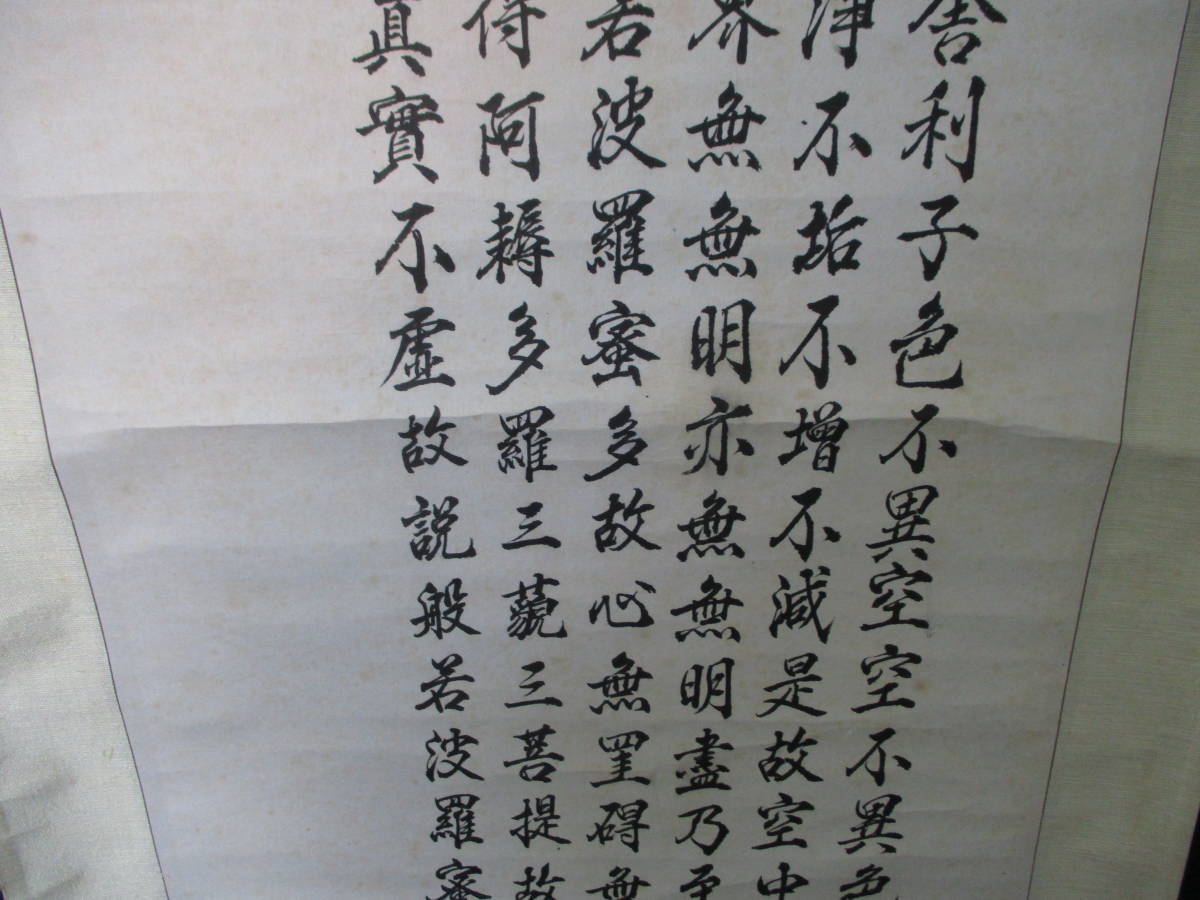 舍利子色不異空空不異色
淨不垢不增不減是故空中
界無無明亦無無明盡乃至
若波羅蜜多故心無罣礙無
得阿耨多羅三藐三菩提故
真實不虛故說般若波羅蜜